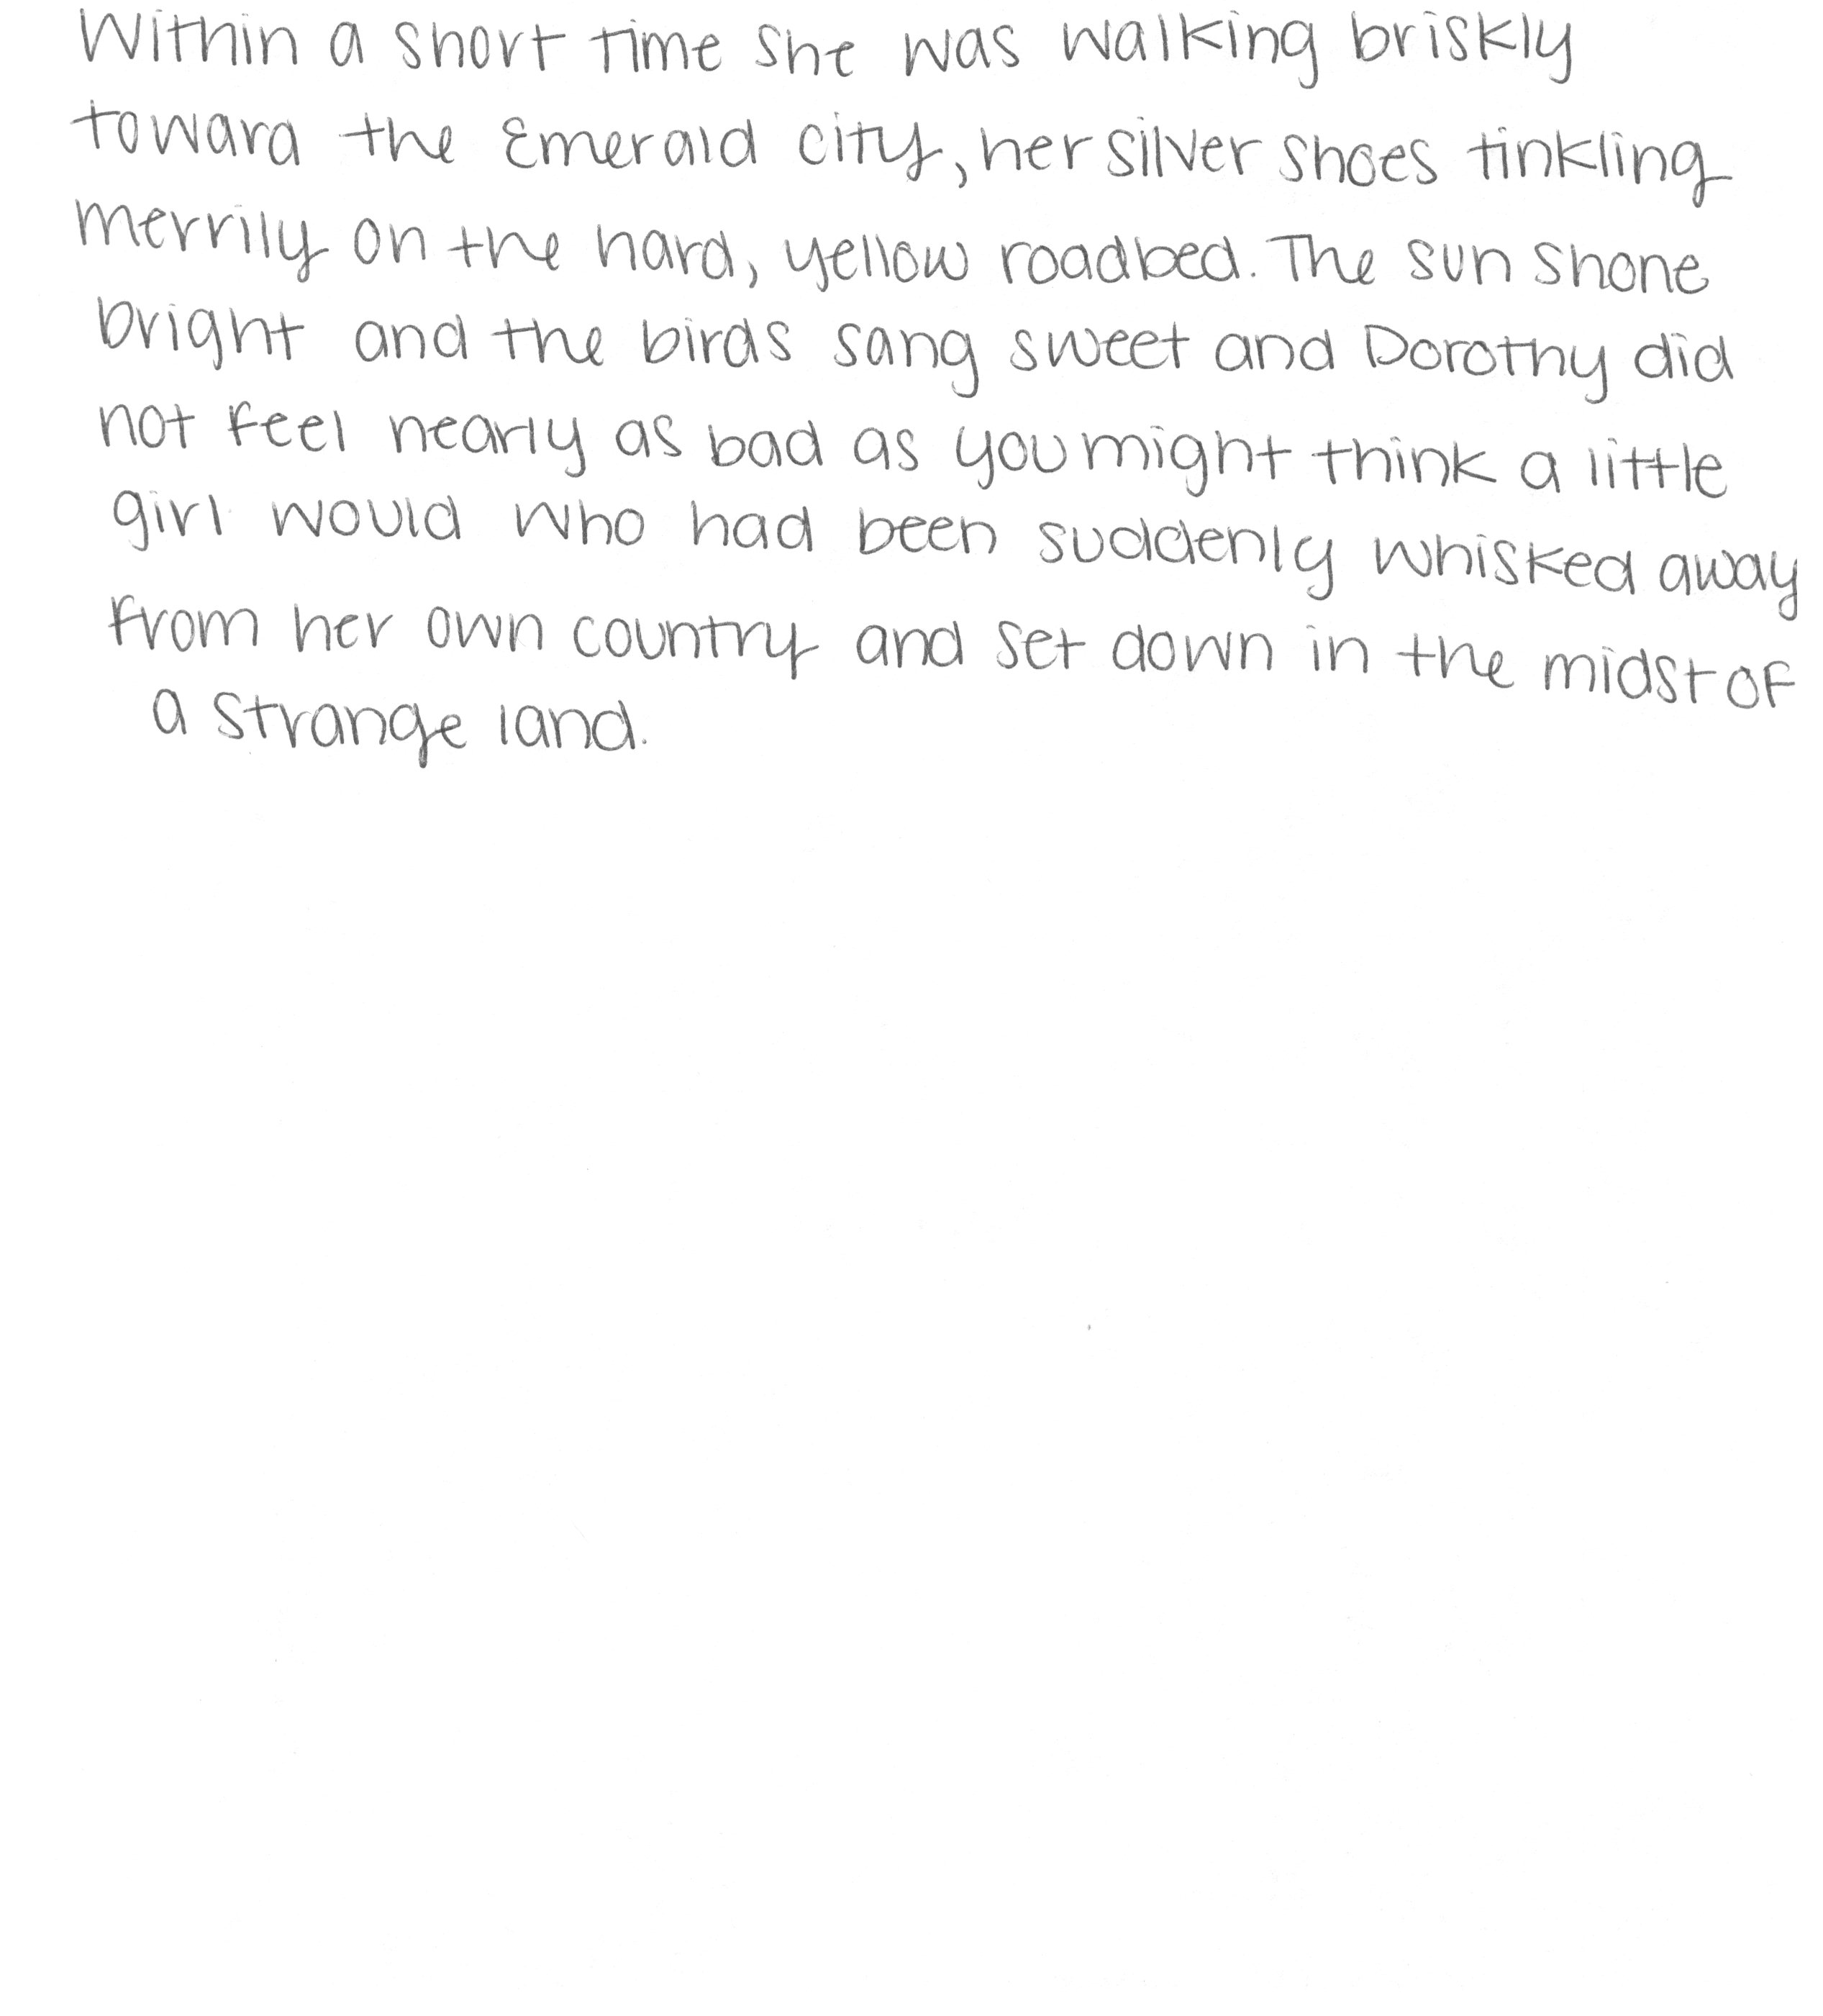 Within a short time she was walking briskly
toward the Emerald city, her silver shoes tinkling
merrily on the hard, yellow roadbed. The sun shone
bright and the birds sang sweet and Dorothy did
not feel nearly as bad as you might think a little
girl would who had been suddenly whisked away
from her own country and set down in the midst of
a strange land.